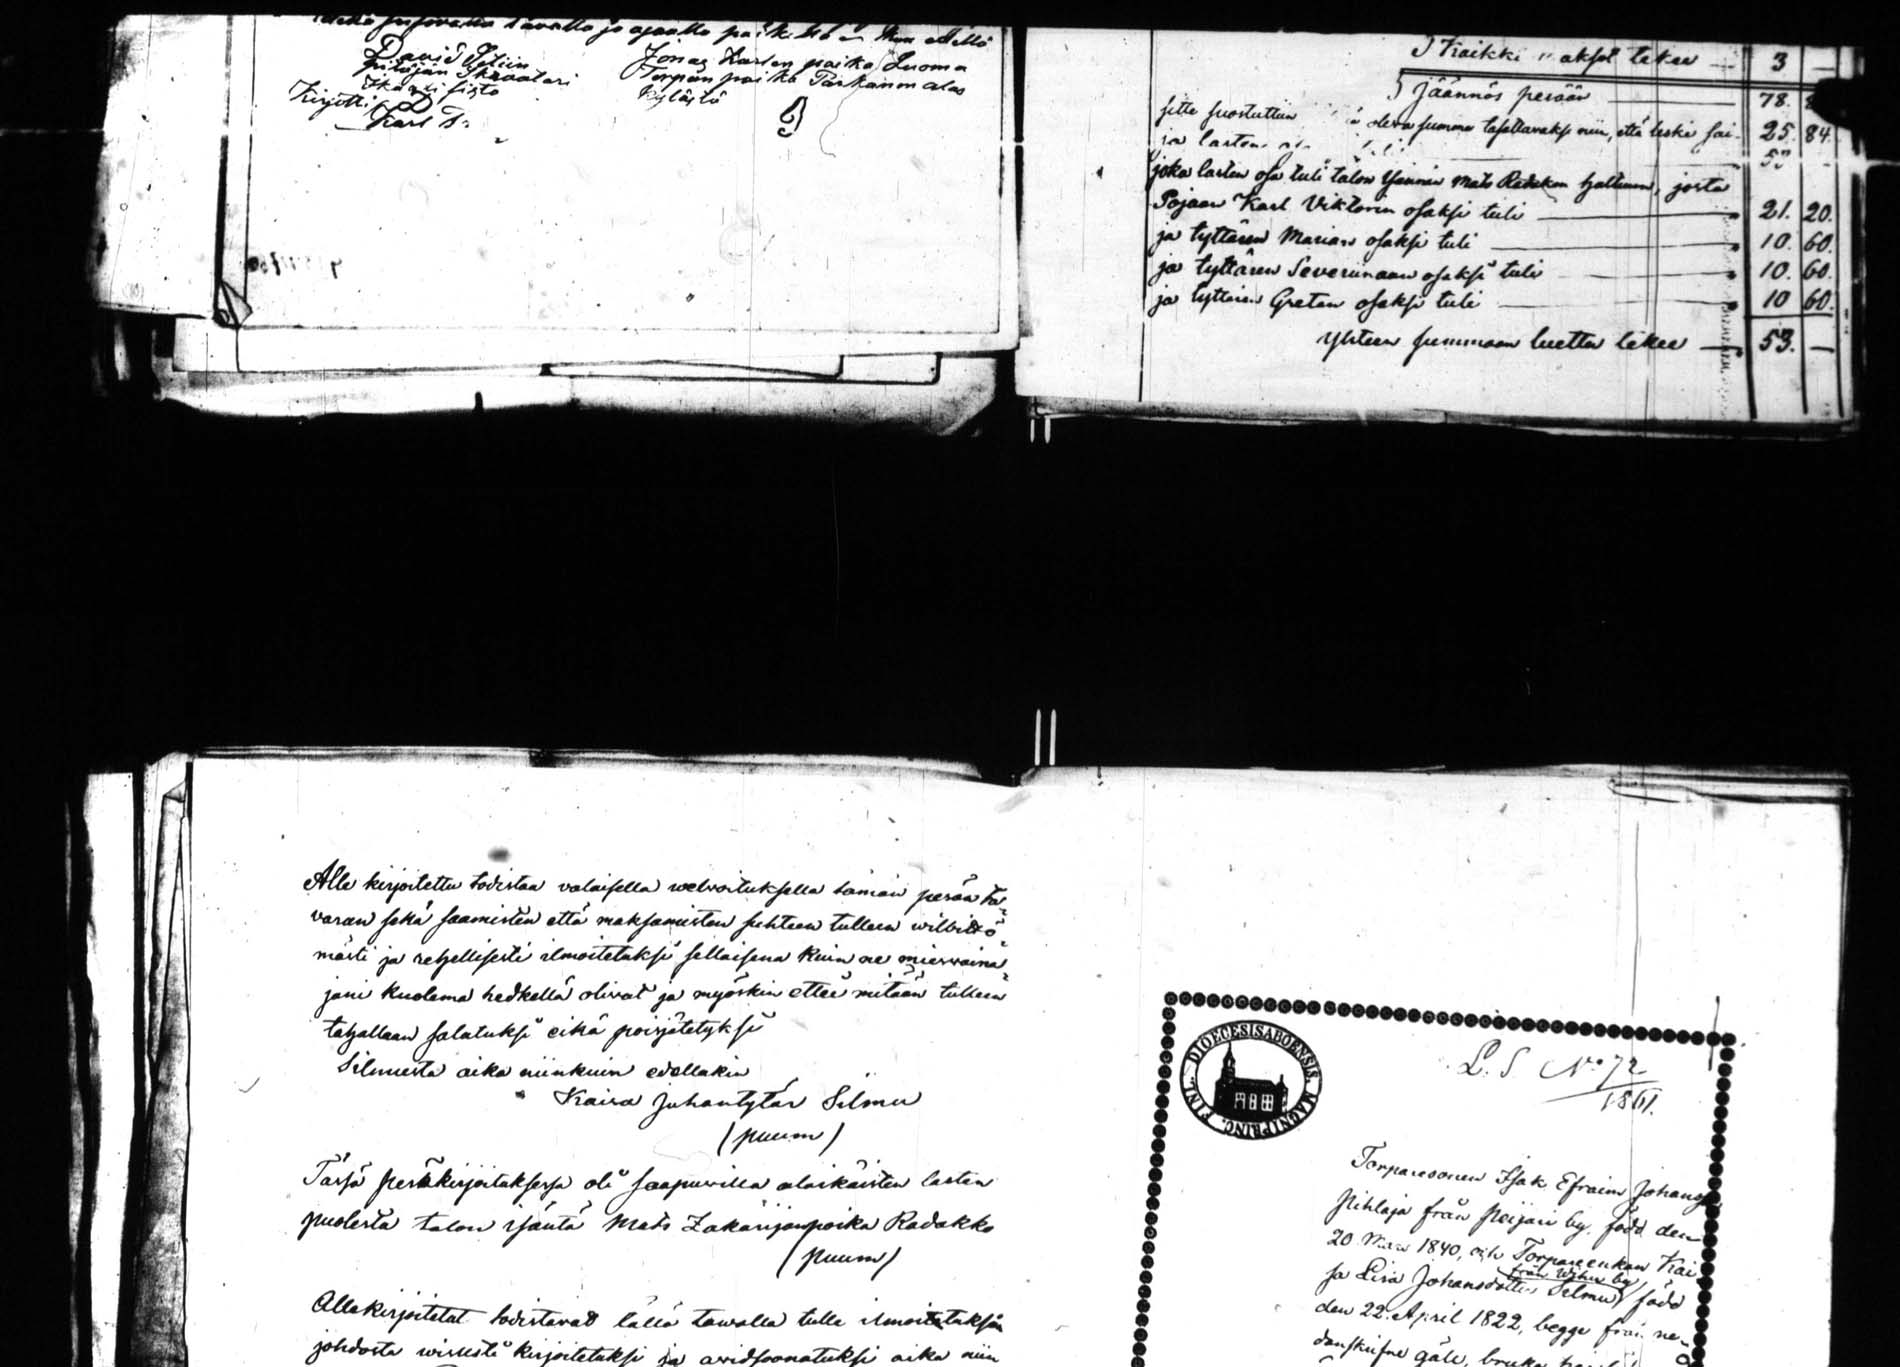 David
Pitäjän Skraatari
Kirjotti
Karl
Jonas Karlen poika Luoma
Torpan poika Parkanon alas
Kylästä
Kaikki maksot tekee 3 —
Jäännös perään 78.
sitte suostuttiin oleva summa tasattavaksi niin, että leski sai 25. 84.
ja lasten
joka lasten osa tuli talon Isännän Mats Radakon haltuun, josta
Pojan Karl Viktorin osaksi tuli 21. 20.
ja tyttären Marian osaksi tuli 10. 60.
ja tyttären Severiinaan osaksi tuli 10. 60.
ja tyttären Gretan osaksi tuli 10 60.
Yhteen summaan luettu tekee 53. —
Alle kirjoitettu todistaa valaisella welvoituksella tämän perän ta
varan sekä saamisten että maksamisten suhteen tulleen wilbittö
mästi ja rehellisesti ilmoitetuksi sellaisena kuin ne miesvaina
jani kuolema hedkellä olivat ja myöskin ettei mitään tulleen
tahallaan salatuksi eikä poisjätetyksi
Silmusta aika niinkuin edellakin
Kaisa Juhantytär Silmu
(puum)
Tässä peräkirjoituksessa oli saapuvilla alaikäisten lasten
puolesta talon isäntä Mats Zakarijanpoika Radakko
(puum)
Allekirjoitetut todistavat tällä tawalla tulle ilmoitetuksen
johdosta wisusti kirjoitetuksi ja arvidsoonatuksi aika niin
FINL. DIOECESIS ABOENSIS. MAGNI PRINC.
L. S. No 72
1861.
Torparesonen Isak Efraim Johans
Pihlaja från Peijari by, född den
20 Mars 1840, och Torpareenkan Kai
från Wihu by
sa Lisa Johansdotter Silmu, född
den 22 April 1822, begge från ne
danskrifne gåle, bruka